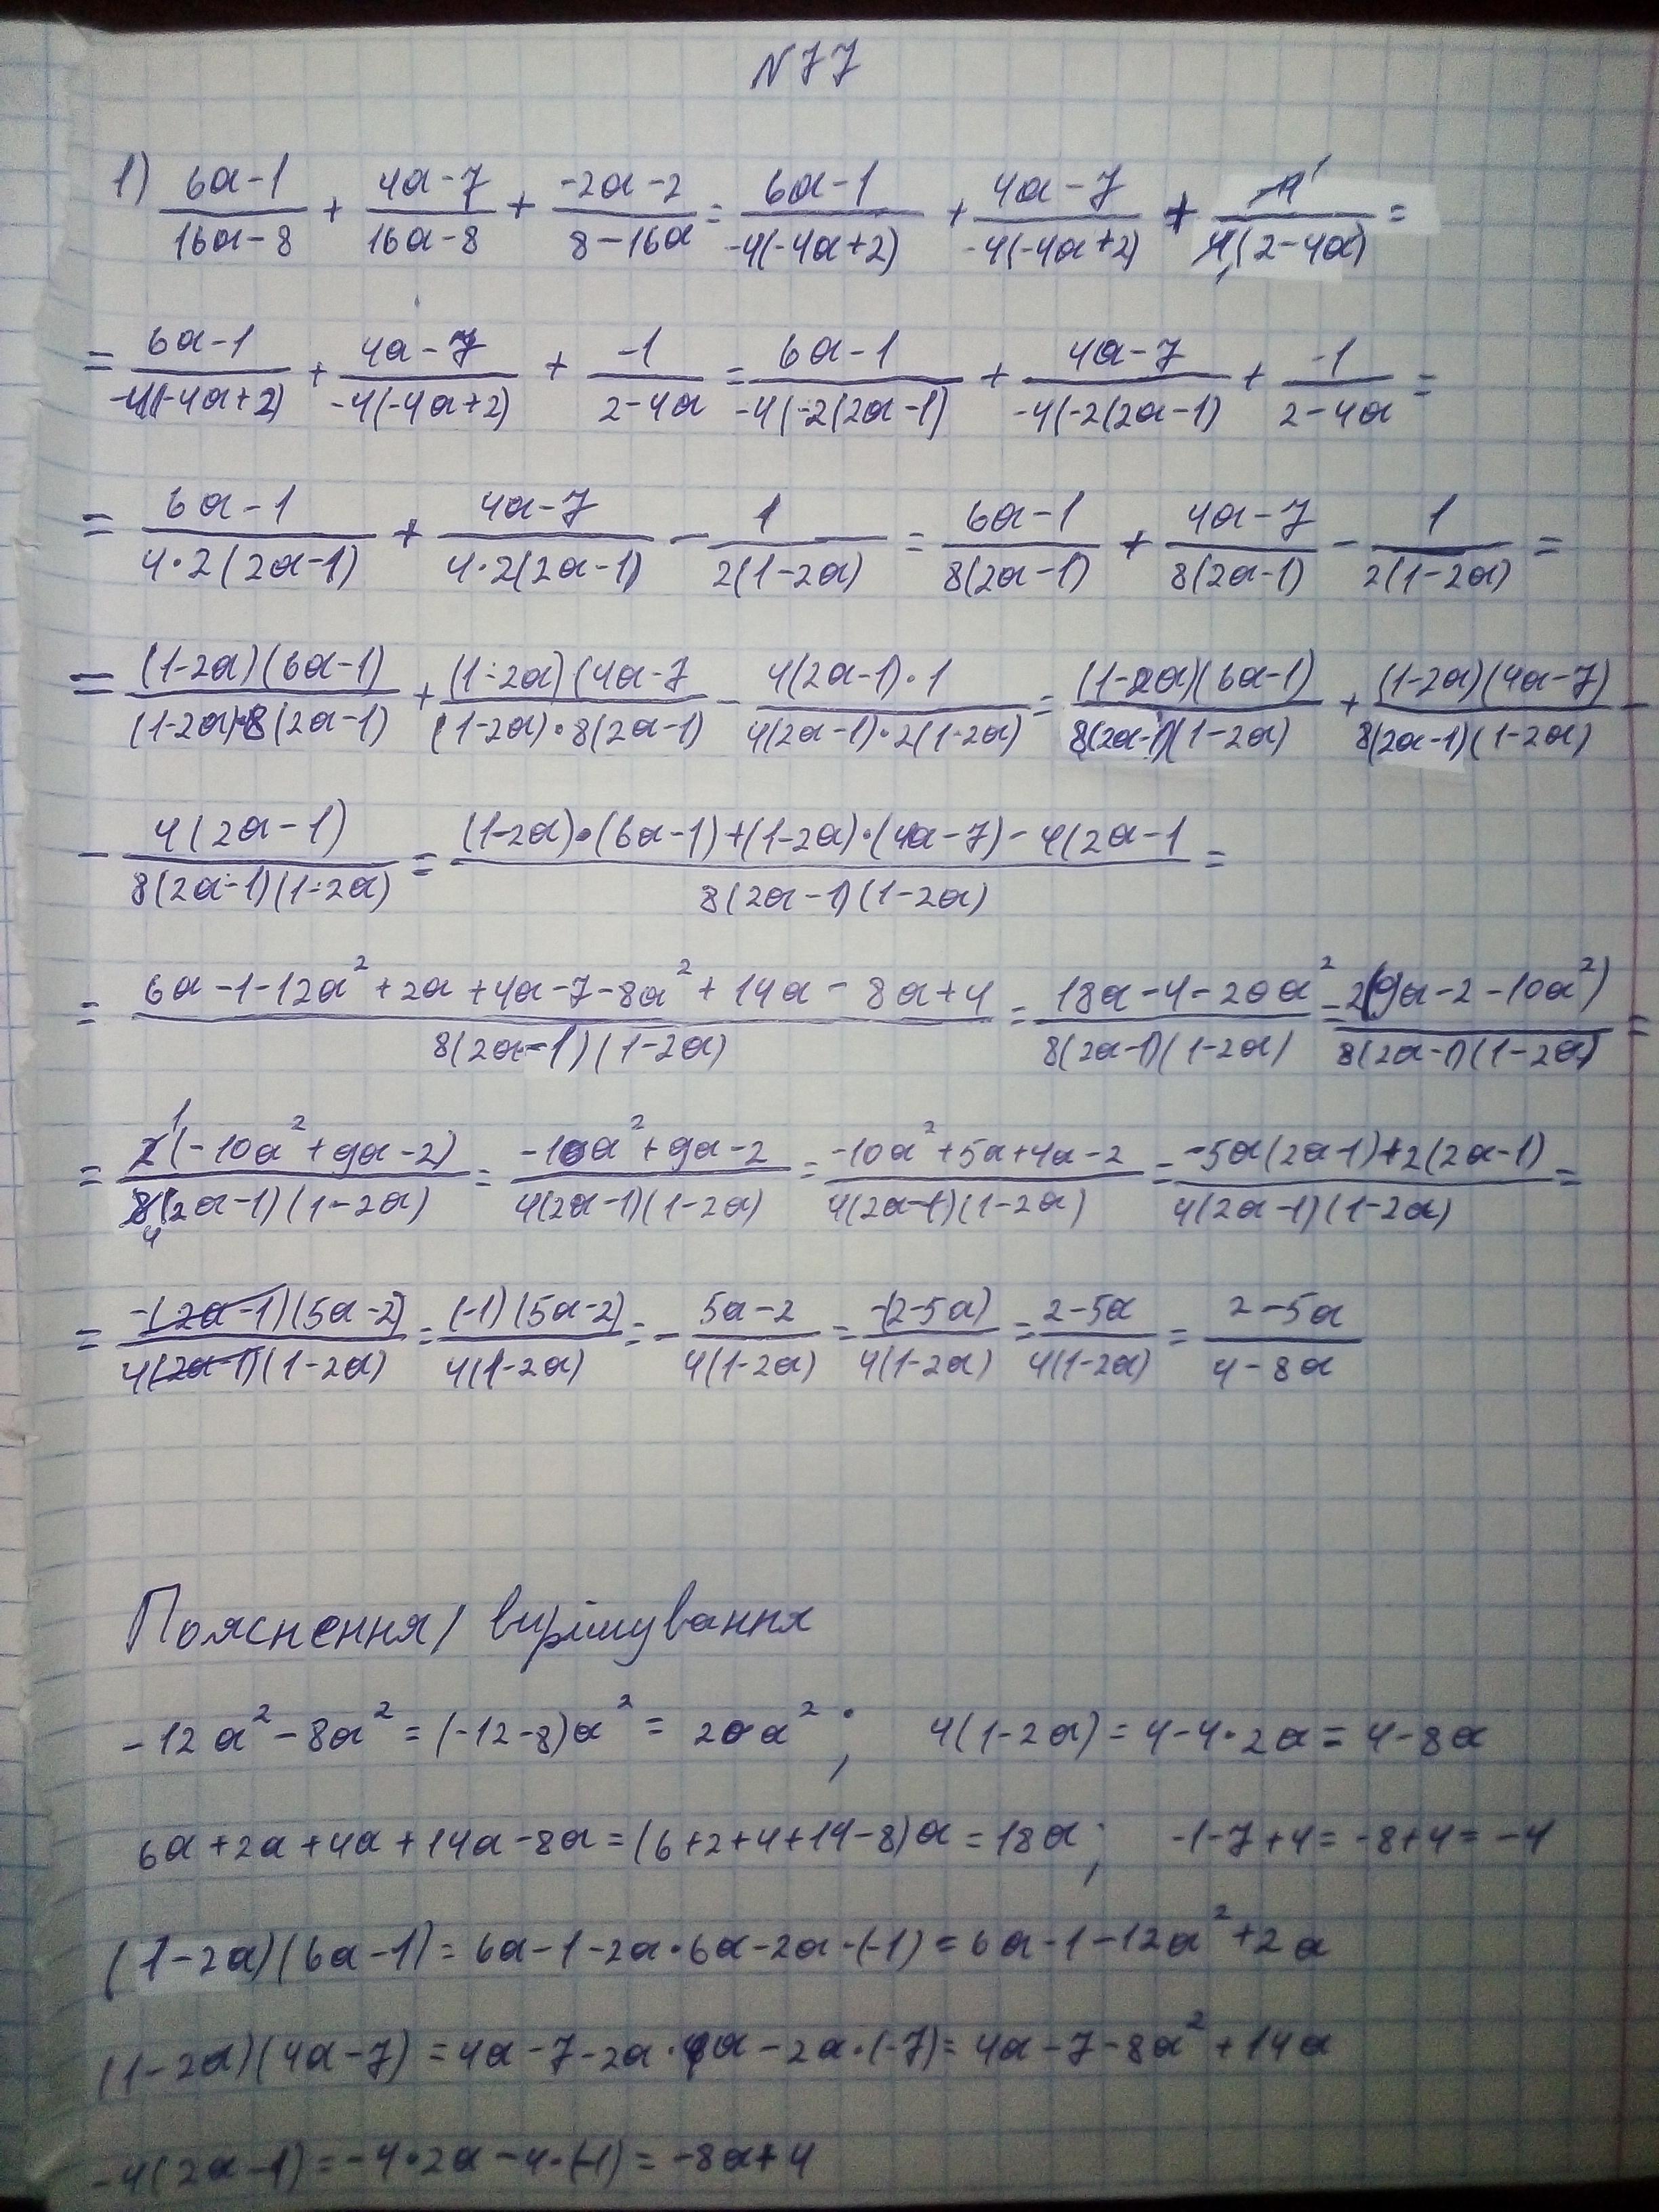 N77
1) (6a-1)/(16a-8) + (4a-7)/(16a-8) + (-2a-2)/(8-16a) = (6a-1)/(-4(-4a+2)) + (4a-7)/(-4(-4a+2)) + (-4 1)/(4 1(2-4a)) =
= (6a-1)/(-4(-4a+2)) + (4a-7)/(-4(-4a+2)) + (-1)/(2-4a) = (6a-1)/(-4(-2(2a-1)) + (4a-7)/(-4(-2(2a-1)) + (-1)/(2-4a) =
= (6a-1)/(4·2(2a-1)) + (4a-7)/(4·2(2a-1)) - 1/(2(1-2a)) = (6a-1)/(8(2a-1)) + (4a-7)/(8(2a-1)) - 1/(2(1-2a)) =
= ((1-2a)(6a-1))/((1-2a)·8(2a-1)) + ((1-2a)(4a-7)/((1-2a)·8(2a-1)) - (4(2a-1)·1)/(4(2a-1)·2(1-2a)) = ((1-2a)(6a-1))/(8(2a-1)(1-2a)) + ((1-2a)(4a-7))/(8(2a-1)(1-2a)) -
- (4(2a-1))/(8(2a-1)(1-2a)) = ((1-2a)·(6a-1)+(1-2a)·(4a-7)-4(2a-1)/(8(2a-1)(1-2a)) =
= (6a-1-12a²+2a+4a-7-8a²+14a-8a+4)/(8(2a-1)(1-2a)) = (18a-4-20a²)/(8(2a-1)(1-2a)) = (2(9a-2-10a²))/(8(2a-1)(1-2a)) =
= (2 1(-10a²+9a-2))/(8 4(2a-1)(1-2a)) = (-10a²+9a-2)/(4(2a-1)(1-2a)) = (-10a²+5a+4a-2)/(4(2a-1)(1-2a)) = (-5a(2a-1)+2(2a-1))/(4(2a-1)(1-2a)) =
= (-(2a-1)(5a-2))/(4(2a-1)(1-2a)) = ((-1)(5a-2))/(4(1-2a)) = - (5a-2)/(4(1-2a)) = (-(2-5a))/(4(1-2a)) = (2-5a)/(4(1-2a)) = (2-5a)/(4-8a)
Пояснення/ вирішування
-12a²-8a² = (-12-8)a² = 20a²; 4(1-2a) = 4-4·2a = 4-8a
6a+2a+4a+14a-8a = (6+2+4+14-8)a = 18a; -1-7+4 = -8+4 = -4
(1-2a)(6a-1) = 6a-1-2a·6a-2a·(-1) = 6a-1-12a²+2a
(1-2a)(4a-7) = 4a-7-2a·4a-2a·(-7) = 4a-7-8a²+14a
-4(2a-1) = -4·2a-4·(-1) = -8a+4